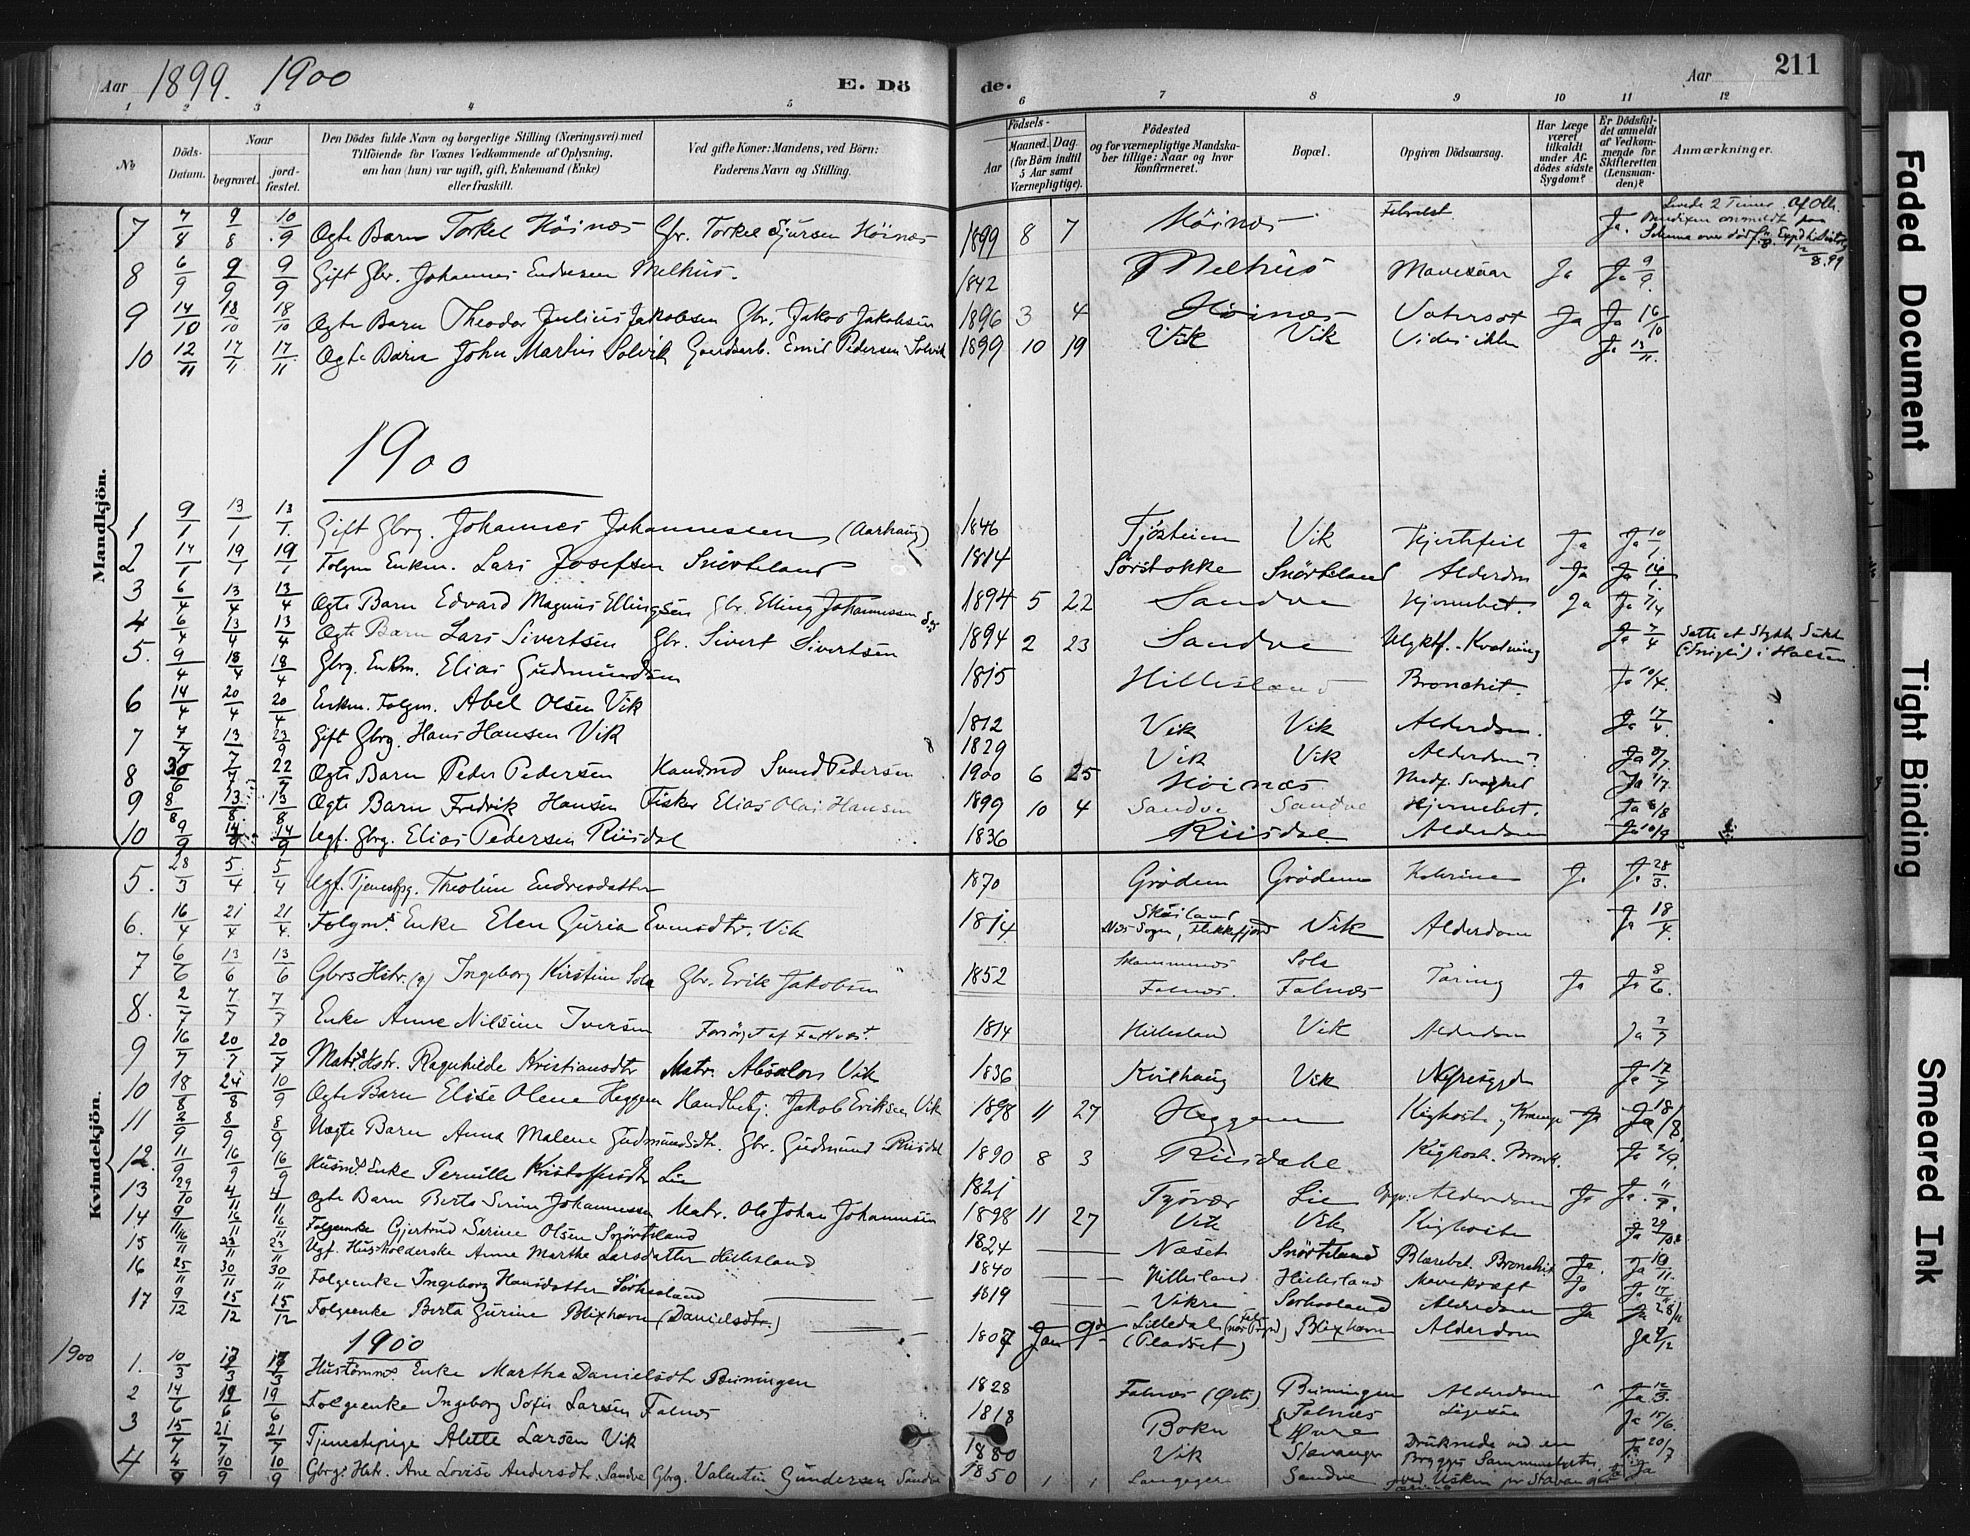 Aar 1899. 1900 E. Dö de. Aar 211
1 2 3 4 5 6 7 8 9 10 11 12
№ Döds-Datum. Naar begravet. jord-fæstet. Den Dödes fulde Navn og borgerlige Stilling (Næringsvei) med Tilföiende for Voxnes Vedkommende af Oplysning, om han (hun) var ugift, gift, Enkemand (Enke) eller fraskilt. Ved gifte Koner: Mandens, ved Börn: Faderens Navn og Stilling. Födsels- Aar Maaned. Dag. (for Börn indtil 5 Aar samt Værnepligtige). Födested og for værnepligtige Mandskaber tillige: Naar og hvor konfirmeret. Bopæl. Opgiven Dödsaarsag. Har Læge været tilkaldt under Afdödes sidste Sygdom? Er Dödsfaldet anmeldt af Vedkommende for Skifteretten (Lensmanden)? Anmærkninger.
Mandkjön.
7 7/8 9/8 10/9 Ægte Barn Torkel Höinæs Gbr. Torkel Sjursen Höinæs 1899 8 7 Höinæs Ja. Levede 2 Timer.
8 6/9 9/9 9/9 Gift Gbr. Johannes Endresen Melhus. 1842 Melhus Mavesaar Ja Ja 9/9.
9 14/10 18/10 18/10 Ægte Barn Theodor Julius Jakobsen Gbr. Jakob Jakobsen 1896 3 4 Höinæs Vatersot Ja Ja 16/10
10 12/11 17/11 17/11 Ægte Barn John Martin Solvik Gaardarb. Emil Pedersen Solvik 1899 10 19 Vik Vik Vides ikke Ja 13/11.
1900
1 9/1 13/1 13/1. Gift Gbrg. Johannes Johannessen (Aarhaug) 1846 Tjösteim Vik Hjertefeil Ja Ja 10/1.
2 14/1 19/1 19/1 Folgm Enkm. Lars Josefsen Snörteland 1814 Sörstokke Snörteland Alderdom Ja Ja 14/1.
3 6/4 13/4 13/4 Ægte Barn Edvard Magnus Ellingsen Gbr. Elling Johannessen 1894 5 22 Sandve Hjernebet. Ja Ja 7/4
4 6/4 13/4 13/4 Ægte Barn Lars Sivertsen Gbr. Sivert Sivertsen 1894 2 23 Sandve Ulykstf. - Kvælning Ja 7/4 Satte et Stykke i Halsen.
5. 9/4 18/4 18/4 Gbrg. Enkm. Elias Gudmundsen 1815 Hillesland Bronchit. Ja 10/4.
6 14/4 20/4 20/4 Enkm. Folgm. Abel Olsen Vik 1812 Vik Vik Alderdom. Ja 17/4
7 7/7 13/7 23/9 Gift Gbrg. Hans Hansen Vik 1829 Vik Vik Alderdom? Ja 8/7.
8 30/6 22/7 Ægte Barn Peder Pedersen Handmd Svend Pedersen 1900 6 25 Höinæs Medf. Svaghed Ja
9 8/8 13/8 13/8 Ægte Barn Fredrik Hansen Fisker Elias Olai Hansen 1899 10 4 Sandve Sandve Hjernebet. Ja 8/8
10 9/9 14/9 14/9 Ugf. Gbrg. Elias Pedersen Riisdal 1836 Riisdal Alderdom Ja 10/9
Kvindekjön.
5. 28/3 5/4 5/4 Ugf. Tjenestpg. Theoline Endresdatter 1870 Grödem Grödem Ja Ja 28/3.
6. 16/4 21/4 21/4. Folgms Enke Elen Guria Evensdtr. Vik 1814 Næs Sogn, Flekkefjord Vik Alderdom Ja 18/4.
7 6/6 13/6 13/6 Gbrs Hstr. (g) Ingeborg Kirstine Sola Gbr. Erik Jakobsen 1852 Falnæs. Sola Falnæs Tæring Ja Ja 8/6.
8. 2/7 7/7 7/7 Enke Anne Nilsine Iversen Forsörget af Fattigv. 1814 Hillesland Vik Alderdom Ja 3/7
9 16/7 20/7 20/7 Matr. Hstr. Ragnhilde Kristiansdtr Matr. Absalon Vik 1836 Kvilhaug Vik Nyresygd Ja 17/7
10 18/8 24/8 10/9 Ægte Barn Elise Olene Heggem Handelsbetj: Jakob Eriksen Vik 1898 11 27 Heggem Kighoste, Krampe Ja Ja 18/8.
11 2/9 8/9 8/9 Uægte Barn Anna Malene Gudmundsdtr. Gbr. Gudmund Riisdal 1890 8 3 Riisdahl. Kighost. Bronk. Ja 4/9.
12. 11/9 16/9 16/9 Husms Enke Pernille Kristoffersdtr Lie 1821 Tysvær Lie Opgiv: Alderdom Ja Ja. 11/9.
13 29/10 4/11 4/11 Ægte Barn Berte Sirine Johannessen Matr. Ole Johan Johannesen 1898 11 27 Vik Vik Kighoste Ja 29/10
14. 9/11 16/11 16/11 Folgeenke Gjertrud Serine Olsen Snörteland 1824 Næset Snörteland Blærebet. Bronchit Ja. Ja 10/11.
15 16/11 23/11 23/11 Ugf. Husholderske Anne Marthe Larsdatter Hillesland 1840 Hillesland Hillesland Mavekræft Ja Ja 17/11
16 25/11 30/11 30/11 Folgeenke Ingeborg Hansdatter Sörhaaland 1819 Vikre Sörhaaland Alderdom Ja Ja 28/11
17 9/12 15/12 15/12 Folgeenke Berta Gurine Blixhavn (Danielsdtr.) 1807 Jan 9de Lilledal (Pladset) Blixhavn Alderdom Ja 9/12
1900 1900
1. 10/3 17/3 17/3 Hustömms Enke Martha Danielsdtr Beiningen 1828 Falnæs Beiningen Alderdom " Ja 12/3.
2 14/6 19/6 19/6 Folgeenke Ingeborg Sofie Larsen Falnæs 1818 Bokn Falnæs Ja 15/6.
3 15/7 21/7 21/7 Tjenestepige Alette Larsen Vik 1880 Vik Stavanger Druknede ved en 20/7
4 4/9 10/9 10/9 Gbrgs Hstr. Ane Lovise Andersdtr. Sandve Gbrg. Valentin Gundersen Sandve 1850 1 1 Sandve Tæring Ja Ja
Faded Document
Tight Binding
Smeared Ink